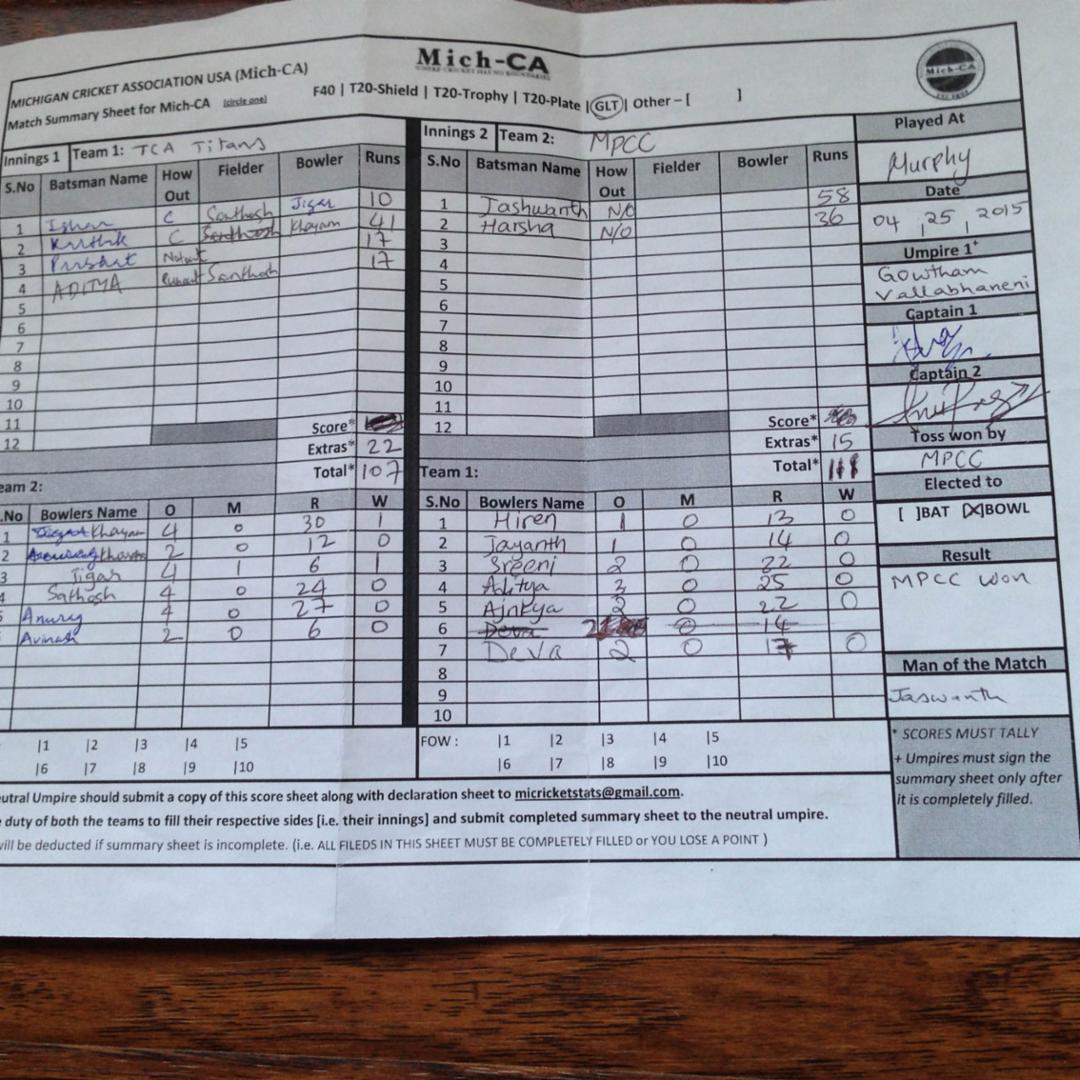 MICHIGAN CRICKET ASSOCIATION USA (Mich-CA)
Mich-CA
Mich-CA
Match Summary Sheet for Mich-CA (circle one) F40 | T20-Shield | T20-Trophy | T20-Plate | GLT | Other – [ ]
Innings 1 Team 1: TCA Titans
S.No Batsman Name How Out Fielder Bowler Runs
1 Ishan C Santhosh Jigar 10
2 Karthik C Santhosh Khayam 41
3 Notout 17
4 ADITYA Runout Santhosh 17
5
6
7
8
9
10
11
12
Score*
Extras* 22
Total* 107
eam 2:
.No Bowlers Name O M R W
1 Khayam 4 0 30 1
2 2 0 12 0
3 Jigar 4 1 6 1
4 Sathosh 4 0 24 0
Anurag 4 0 27 0
Avinash 2 0 6 0
|1 |2 |3 |4 |5
|6 |7 |8 |9 |10
Innings 2 Team 2: MPCC
S.No Batsman Name How Out Fielder Bowler Runs
1 Jashwanth N/O 58
2 Harsha N/O 36
3
4
5
6
7
8
9
10
11
12
Score*
Extras* 15
Total*
Team 1:
S.No Bowlers Name O M R W
1 Hiren 1 0 13 0
2 Jayanth 1 0 14 0
3 Sreeni 2 0 22 0
4 Aditya 3 0 25 0
5 Ajinkya 2 0 22 0
6 Deva 0 14
7 Deva 2 0 17 0
8
9
10
FOW : |1 |2 |3 |4 |5
|6 |7 |8 |9 |10
Played At
Murphy
Date
04 | 25 | 2015
Umpire 1+
Gowtham
Vallabhaneni
Captain 1
Captain 2
Toss won by
MPCC
Elected to
[ ]BAT [X]BOWL
Result
MPCC won
Man of the Match
Jaswanth
* SCORES MUST TALLY
+ Umpires must sign the
summary sheet only after
it is completely filled.
eutral Umpire should submit a copy of this score sheet along with declaration sheet to micricketstats@gmail.com.
e duty of both the teams to fill their respective sides [i.e. their innings] and submit completed summary sheet to the neutral umpire.
will be deducted if summary sheet is incomplete. (i.e. ALL FILEDS IN THIS SHEET MUST BE COMPLETELY FILLED or YOU LOSE A POINT )